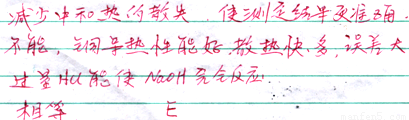 减少中和热的散失 使测定结果更准确.
不能,铜导热性能好,散热快、多,误差大
过量HCl能使NaOH完全反应.
相等 E